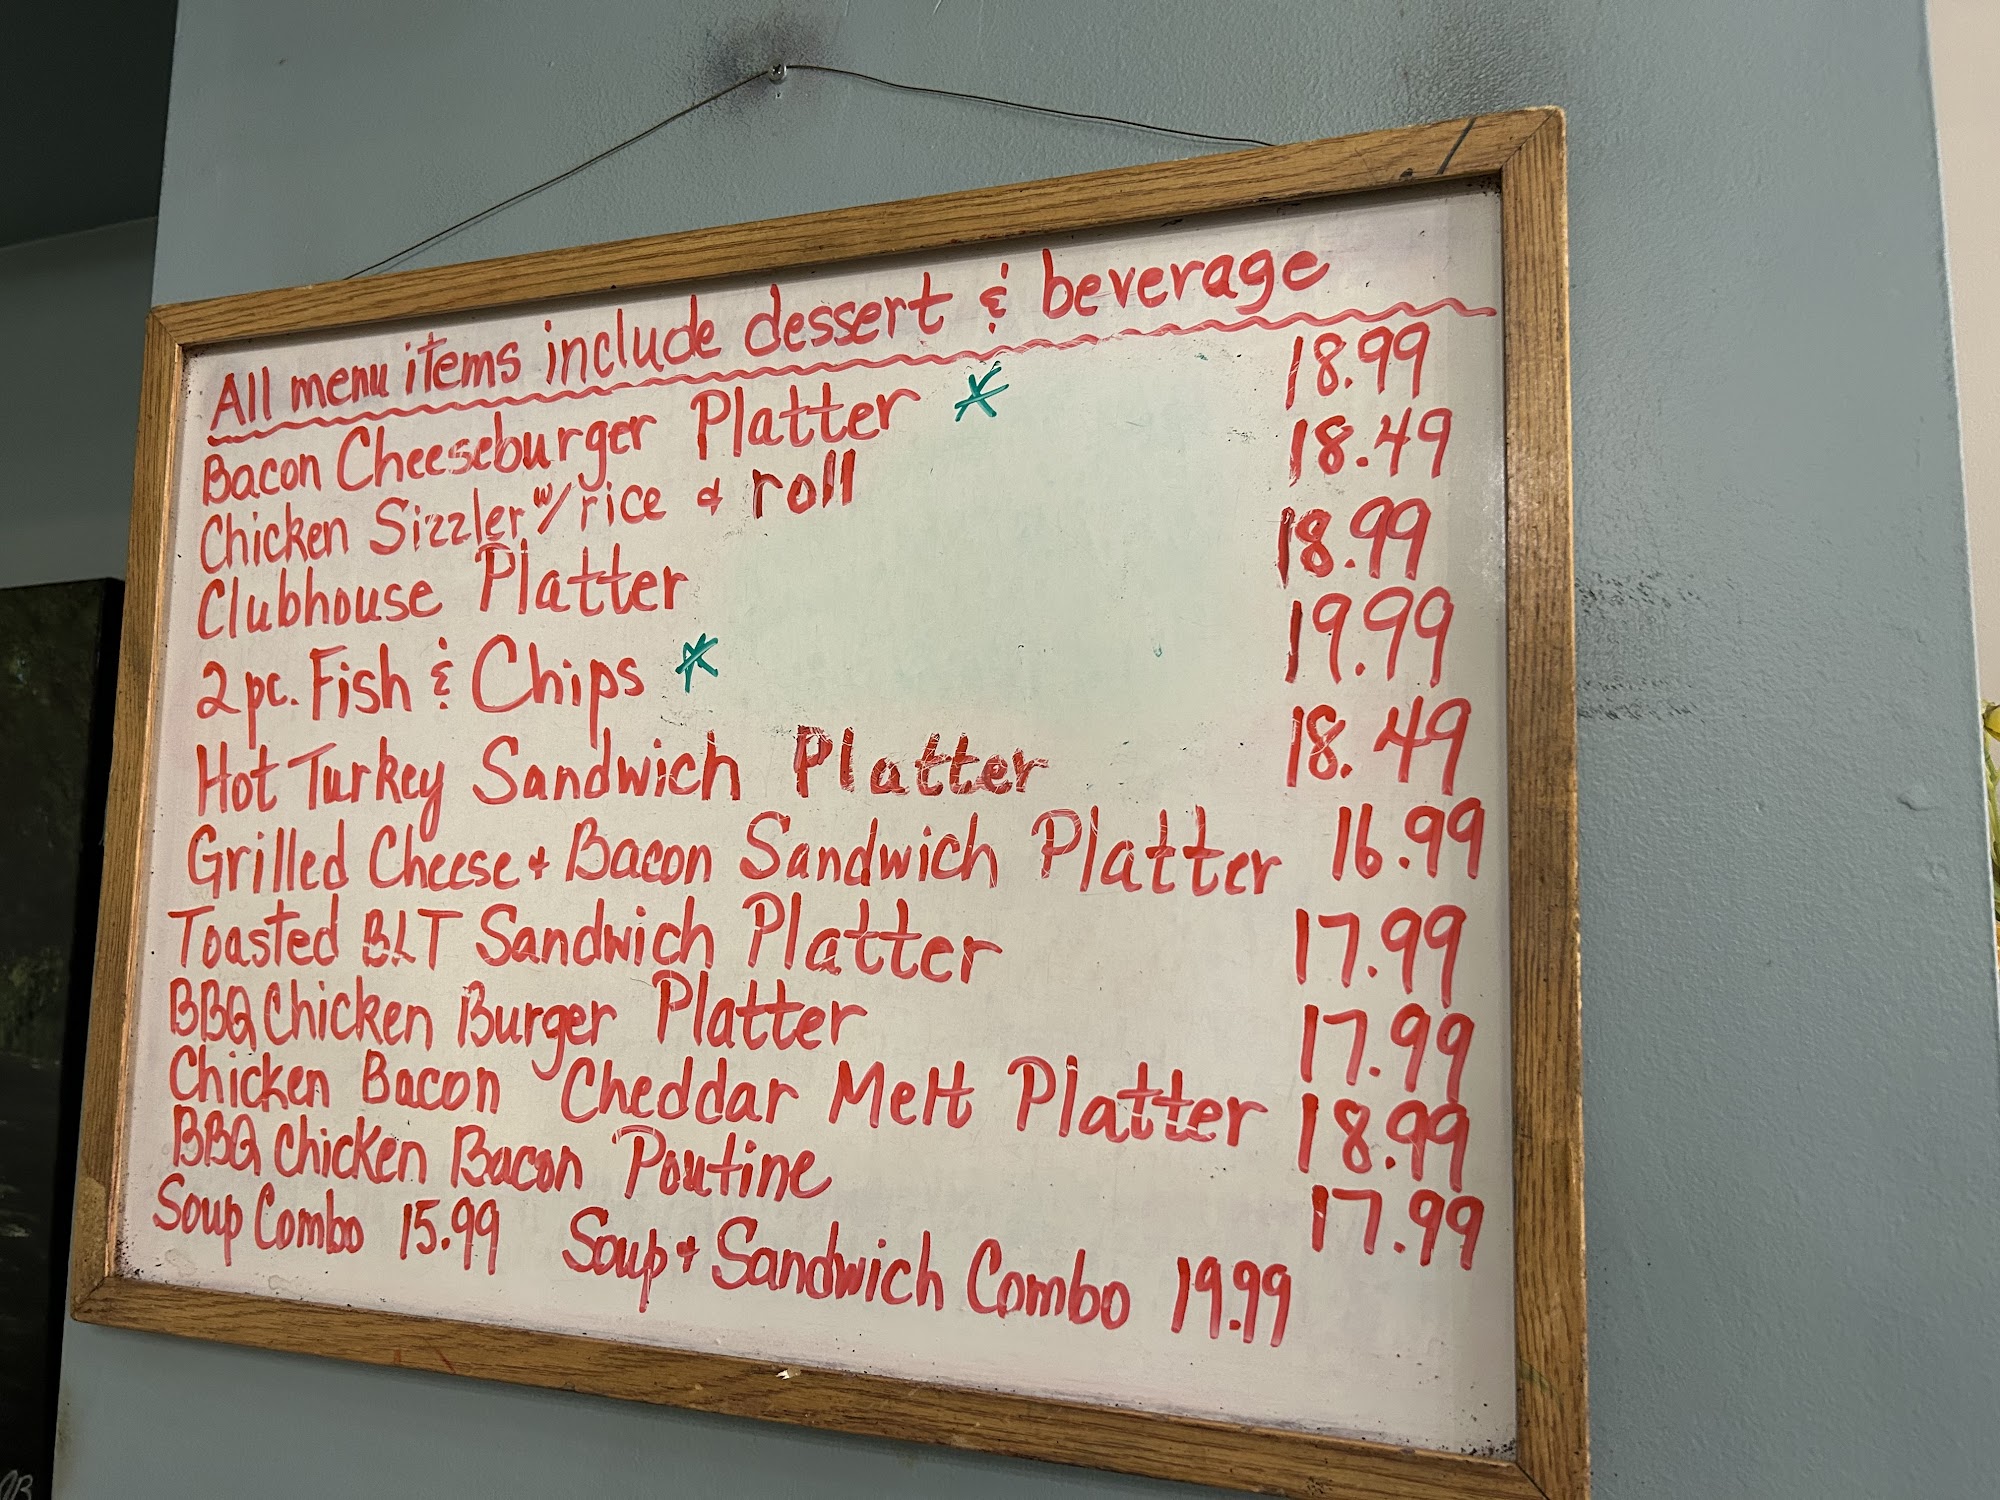 All menu items include dessert & beverage
Bacon Cheeseburger Platter * 18.99
Chicken Sizzler w/ rice & roll 18.49
Clubhouse Platter 18.99
2 pc. Fish & Chips * 19.99
Hot Turkey Sandwich Platter 18.49
Grilled Cheese & Bacon Sandwich Platter 16.99
Toasted BLT Sandwich Platter 17.99
BBQ Chicken Burger Platter 17.99
Chicken Bacon Cheddar Melt Platter 18.99
BBQ Chicken Bacon Poutine 17.99
Soup Combo 15.99 Soup & Sandwich Combo 19.99